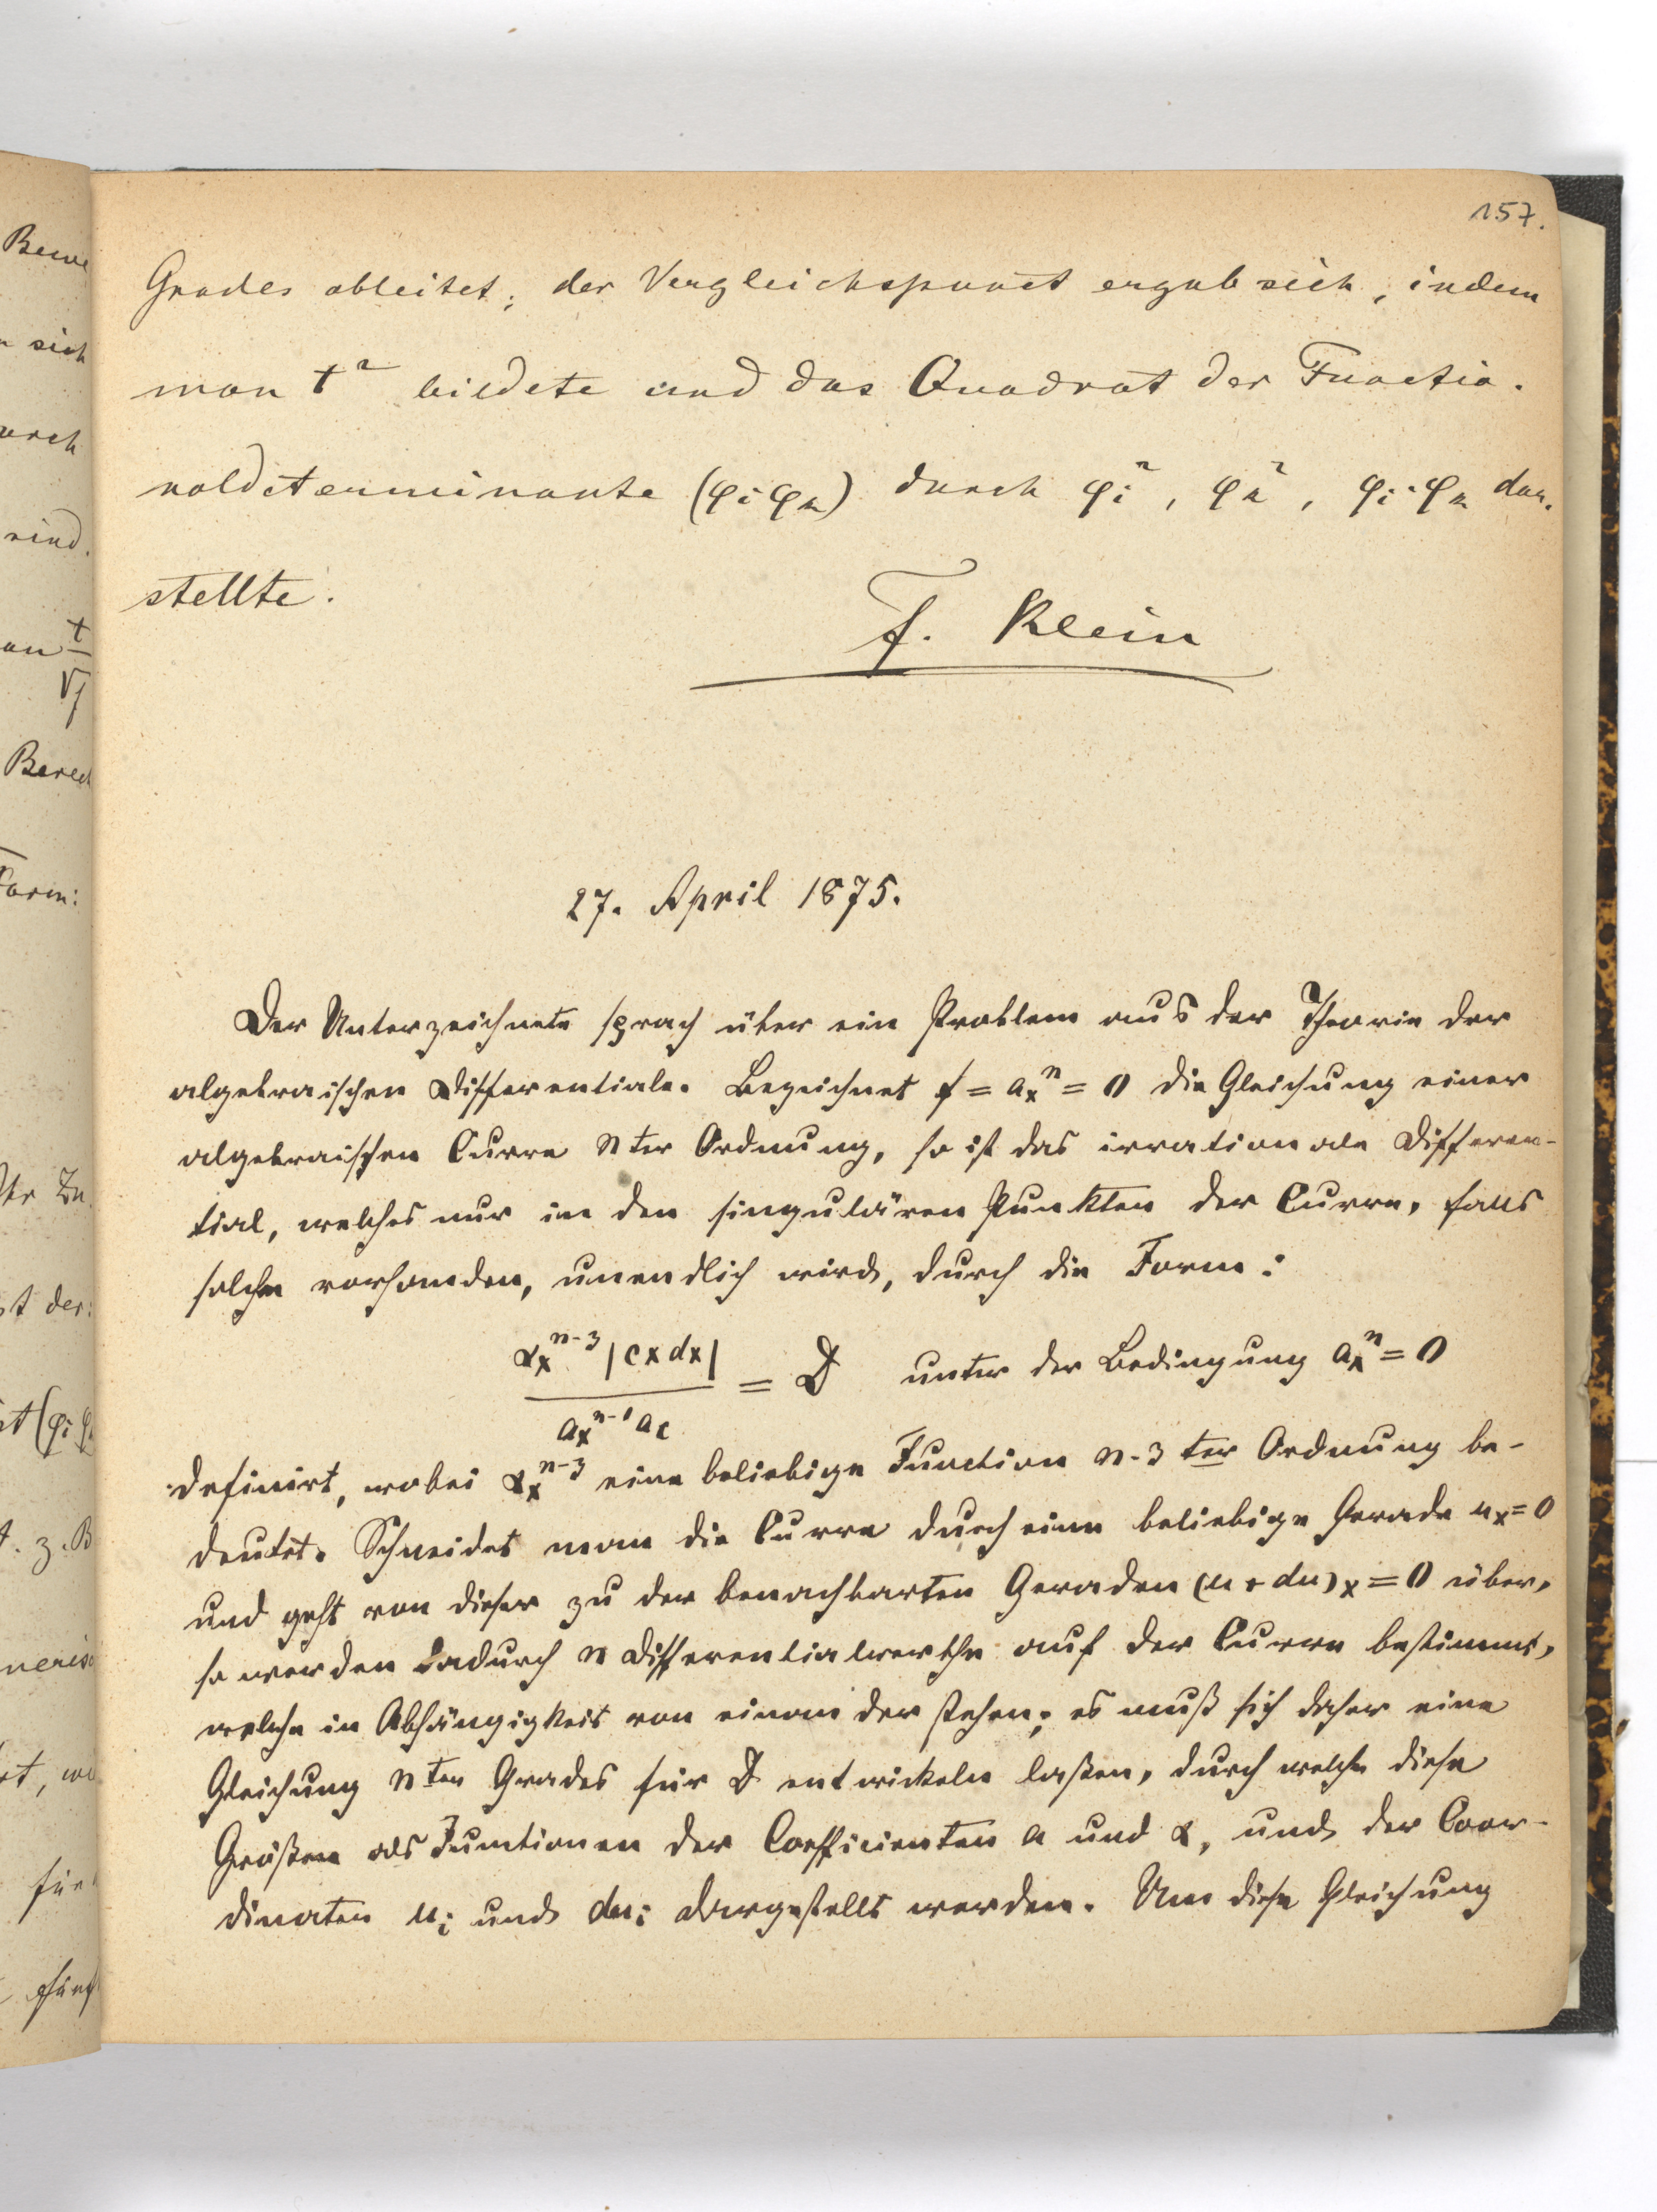 157.
Grades ableitet; der Vergleichspunct ergab sich, indem
man t² bildete und das Quadrat der Functio-
naldeterminante (φi φk) durch φi², φk², φi·φk dar-
stellte.
F. Klein
27. April 1875.
Der Unterzeichnete sprach über ein Problem aus der Theorie der
algebraischen Differentiale. Bezeichnet f = aₓⁿ = 0 die Gleichung einer
algebraischen Curve nter Ordnung, so ist das irrationale Differen-
tial, welches nur in den singulären Punkten der Curve, falls
solche vorhanden, unendlich wird, durch die Form:
αₓⁿ⁻³ |c x dx| / aₓⁿ⁻¹ a_c = D unter der Bedingung aₓⁿ = 0
definirt, wobei αₓⁿ⁻³ eine beliebige Function n-3 ter Ordnung be-
deutet. Schneidet man die Curve durch eine beliebige Gerade uₓ = 0
und geht von dieser zu der benachbarten Geraden (u + du)ₓ = 0 über,
so werden dadurch n Differentialwerthe auf der Curve bestimmt,
welche in Abhängigkeit von einander stehen; es muß sich daher eine
Gleichung nten Grades für D entwickeln laßen, durch welche diese
Größen als Functionen der Coefficienten a und α, und der Coor-
dinaten uᵢ und duᵢ dargestellt werden. Um diese Gleichung
Bewe
sich
urch
sind.
an t
Berech
Form:
st der
z. B
für